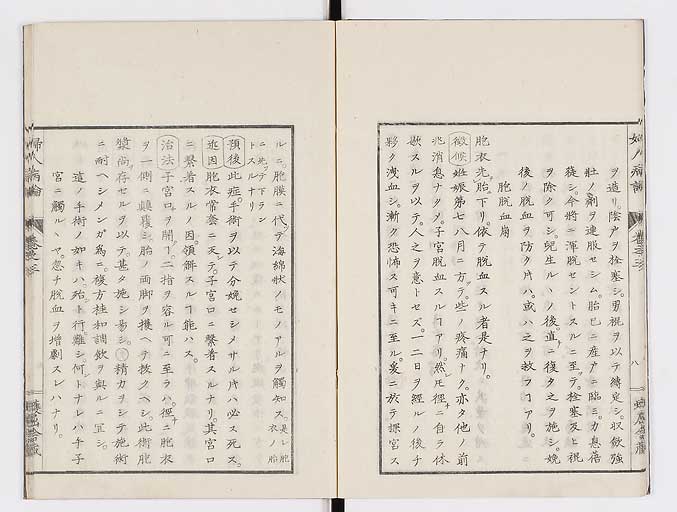 ヲ造リ。陰戸ヲ栓塞シ。男褌ヲ以テ縛定シ。収歛強
壮ノ劑ヲ連服セシム。胎已ニ産戸ニ臨ミ。力息蓓
蓰シ。今將ニ渾脱セントスルニ至テ。栓塞及ヒ褌
ヲ除ク可シ。兒生ルヽノ後。直ニ復タ之ヲ施シ。娩
後ノ脱血ヲ防ク片ハ。或ハ之ヲ救フヿアリ。
胞脱血崩
胞衣先。胎下リ。依テ脱血スル者是ナリ。
徴候 姙娠第七八月ニ方テ。些ノ疼痛ナク。亦タ他ノ前
兆消息ナクメ。子宮脱血スルヿアリ。然圧徑ニ自ラ休
歇スルヲ以テ。人之ヲ意トセズ。一二日ヲ經ルノ後チ
夥ク洩血シ。漸ク恐怖ス可キニ至ル。爰ニ於テ探宮ス
ルニ。胞膜ニ代テ海綿狀ノモノアルヲ觸知ス。是レ胞衣ノ胎
ニ先テ下ラン
トスルナリ
預後 此症。手術ヲ以テ分娩セシメサル片ハ必ス死ス。
逐因 胞衣常套ニ天テ。子宮口ニ繫着スルナリ。其宮口
ニ繫着スルノ因。領解スルヿ能ハス。
治法 子宮口ヲ開ヿ。二指ヲ容ル可ニ至ラハ。徑ニ胞衣
ヲ一側ニ顚覆シ。胎ノ兩脚ヲ攫ヘテ抜クヘシ。此術胞
漿尚存セルヲ以テ。甚タ施シ易シ。精力ヲシテ施術
ニ耐ヘシメンガ爲ニ。複方桂和調飮ヲ與ルニ宜シ。
這ノ手術ノ如キハ。殆ト行難シ。何トナレハ手子
宮ニ觸ルヽヤ。忽チ脱血ヲ增劇スレハナリ。
婦人病論
巻之三
八